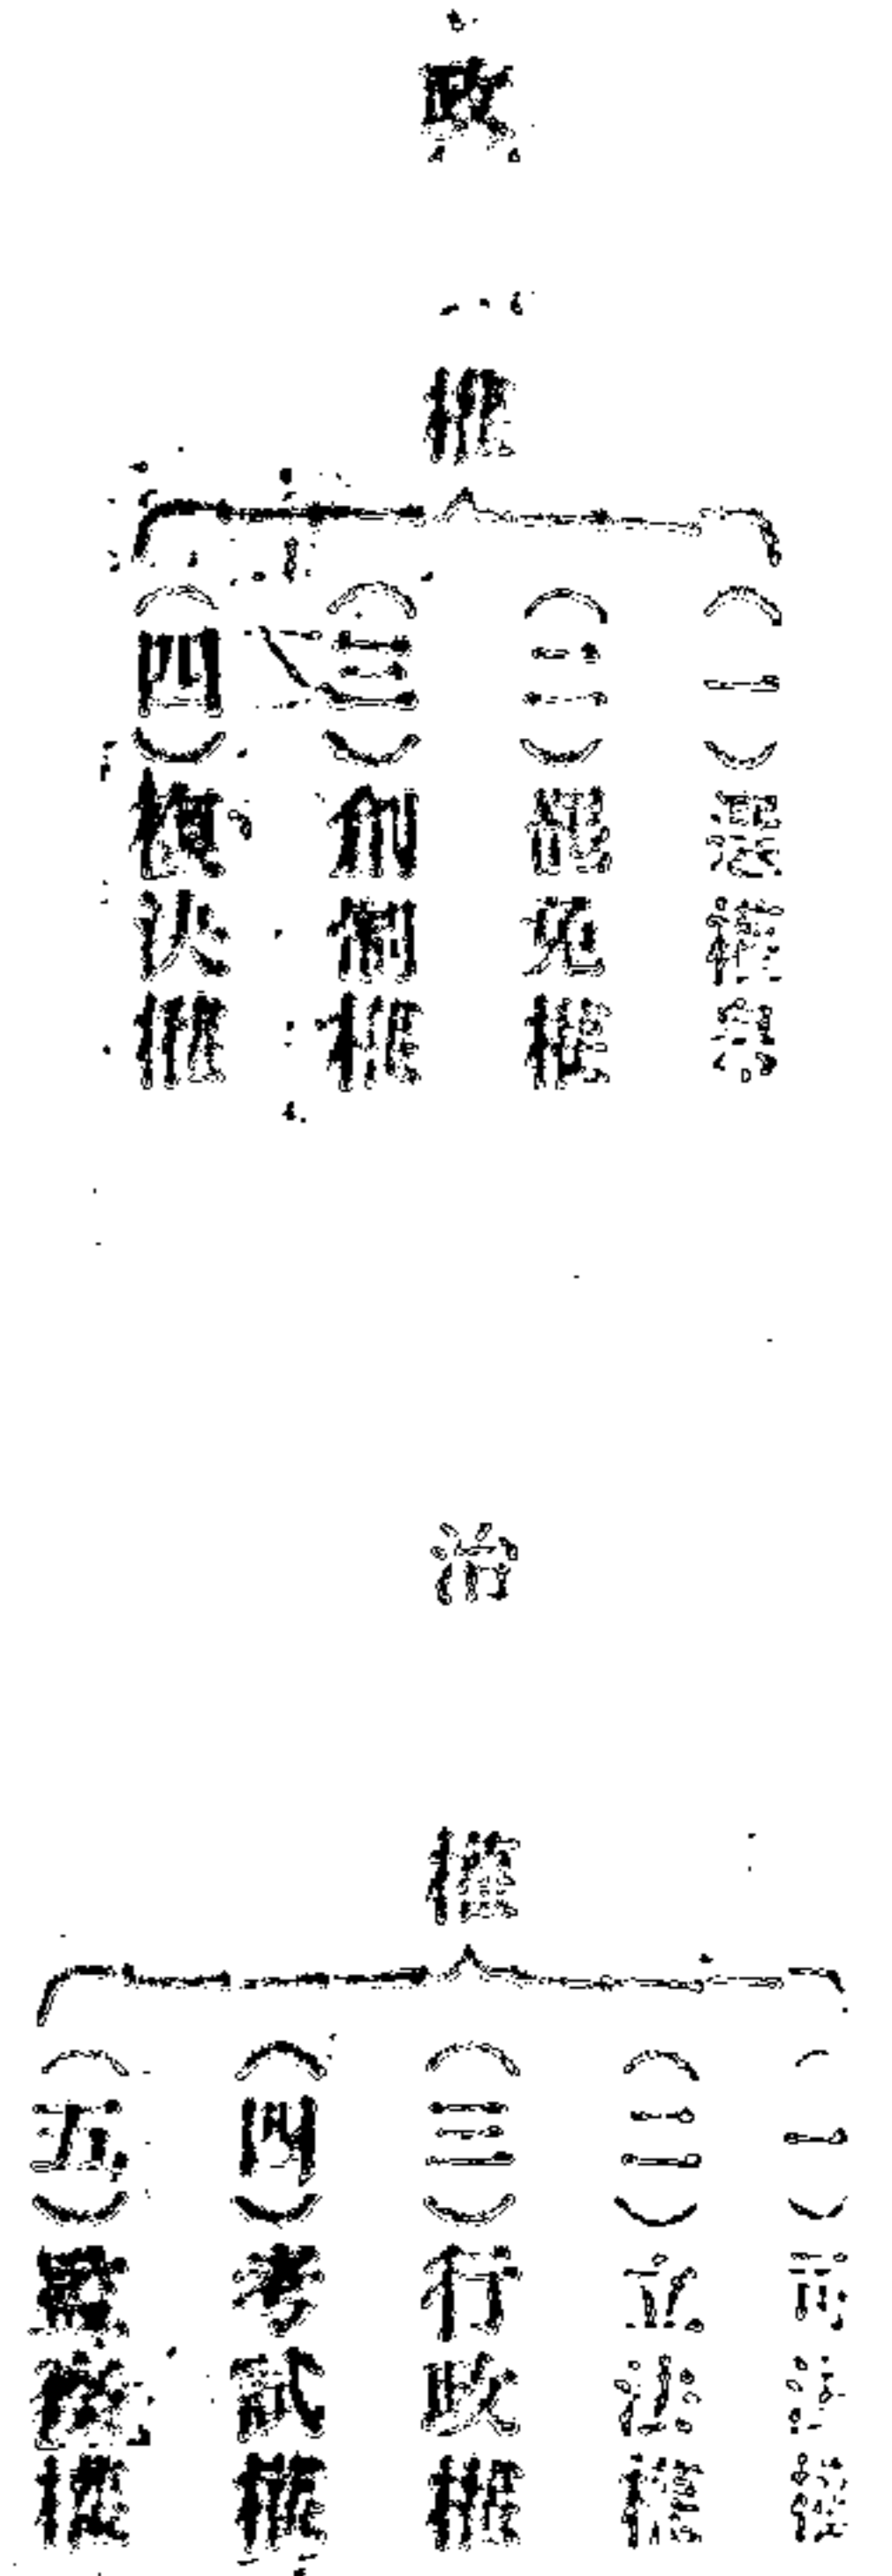 政權
(一)
(二)罷免權
(三)創制權
(四)複決權
治權
(一)司法權
(二)立法權
(三)行政權
(四)考試權
(五)監察權